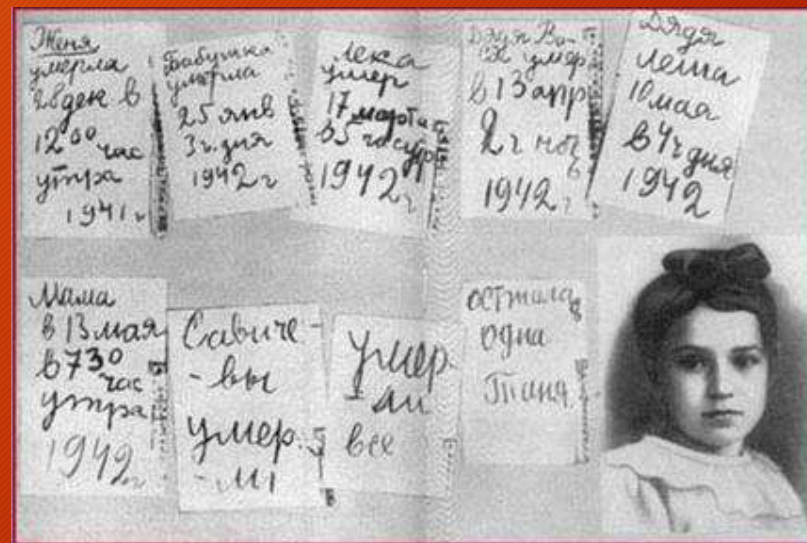 Женя
умерла
28 ден в
12 00 час
утра
1941 г
Бабушка
умерла
25 янв
3 ч. дня
1942 г
Лека
умер
17 марта
в 5 час утр
1942 г
Дядя Ва-
ся умер
в 13 апр
2 ч ноч
1942 г
Дядя
Леша
10 мая
в 4 ч дня
1942
Мама
в 13 мая
в 7 30
час
утра
1942 г
Савиче-
-вы
умер-
-ли
умер
-ли
все
одна
Таня